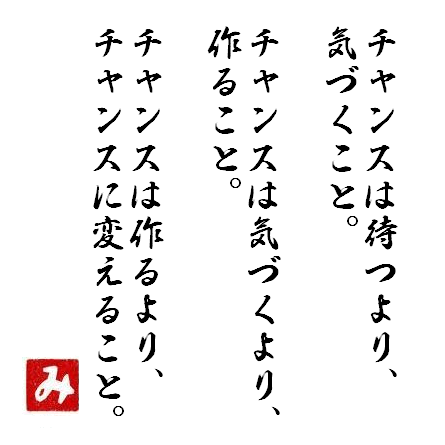 チャンスは待つより、
気づくこと。
チャンスは気づくより、
作ること。
チャンスは作るより、
チャンスに変えること。
み